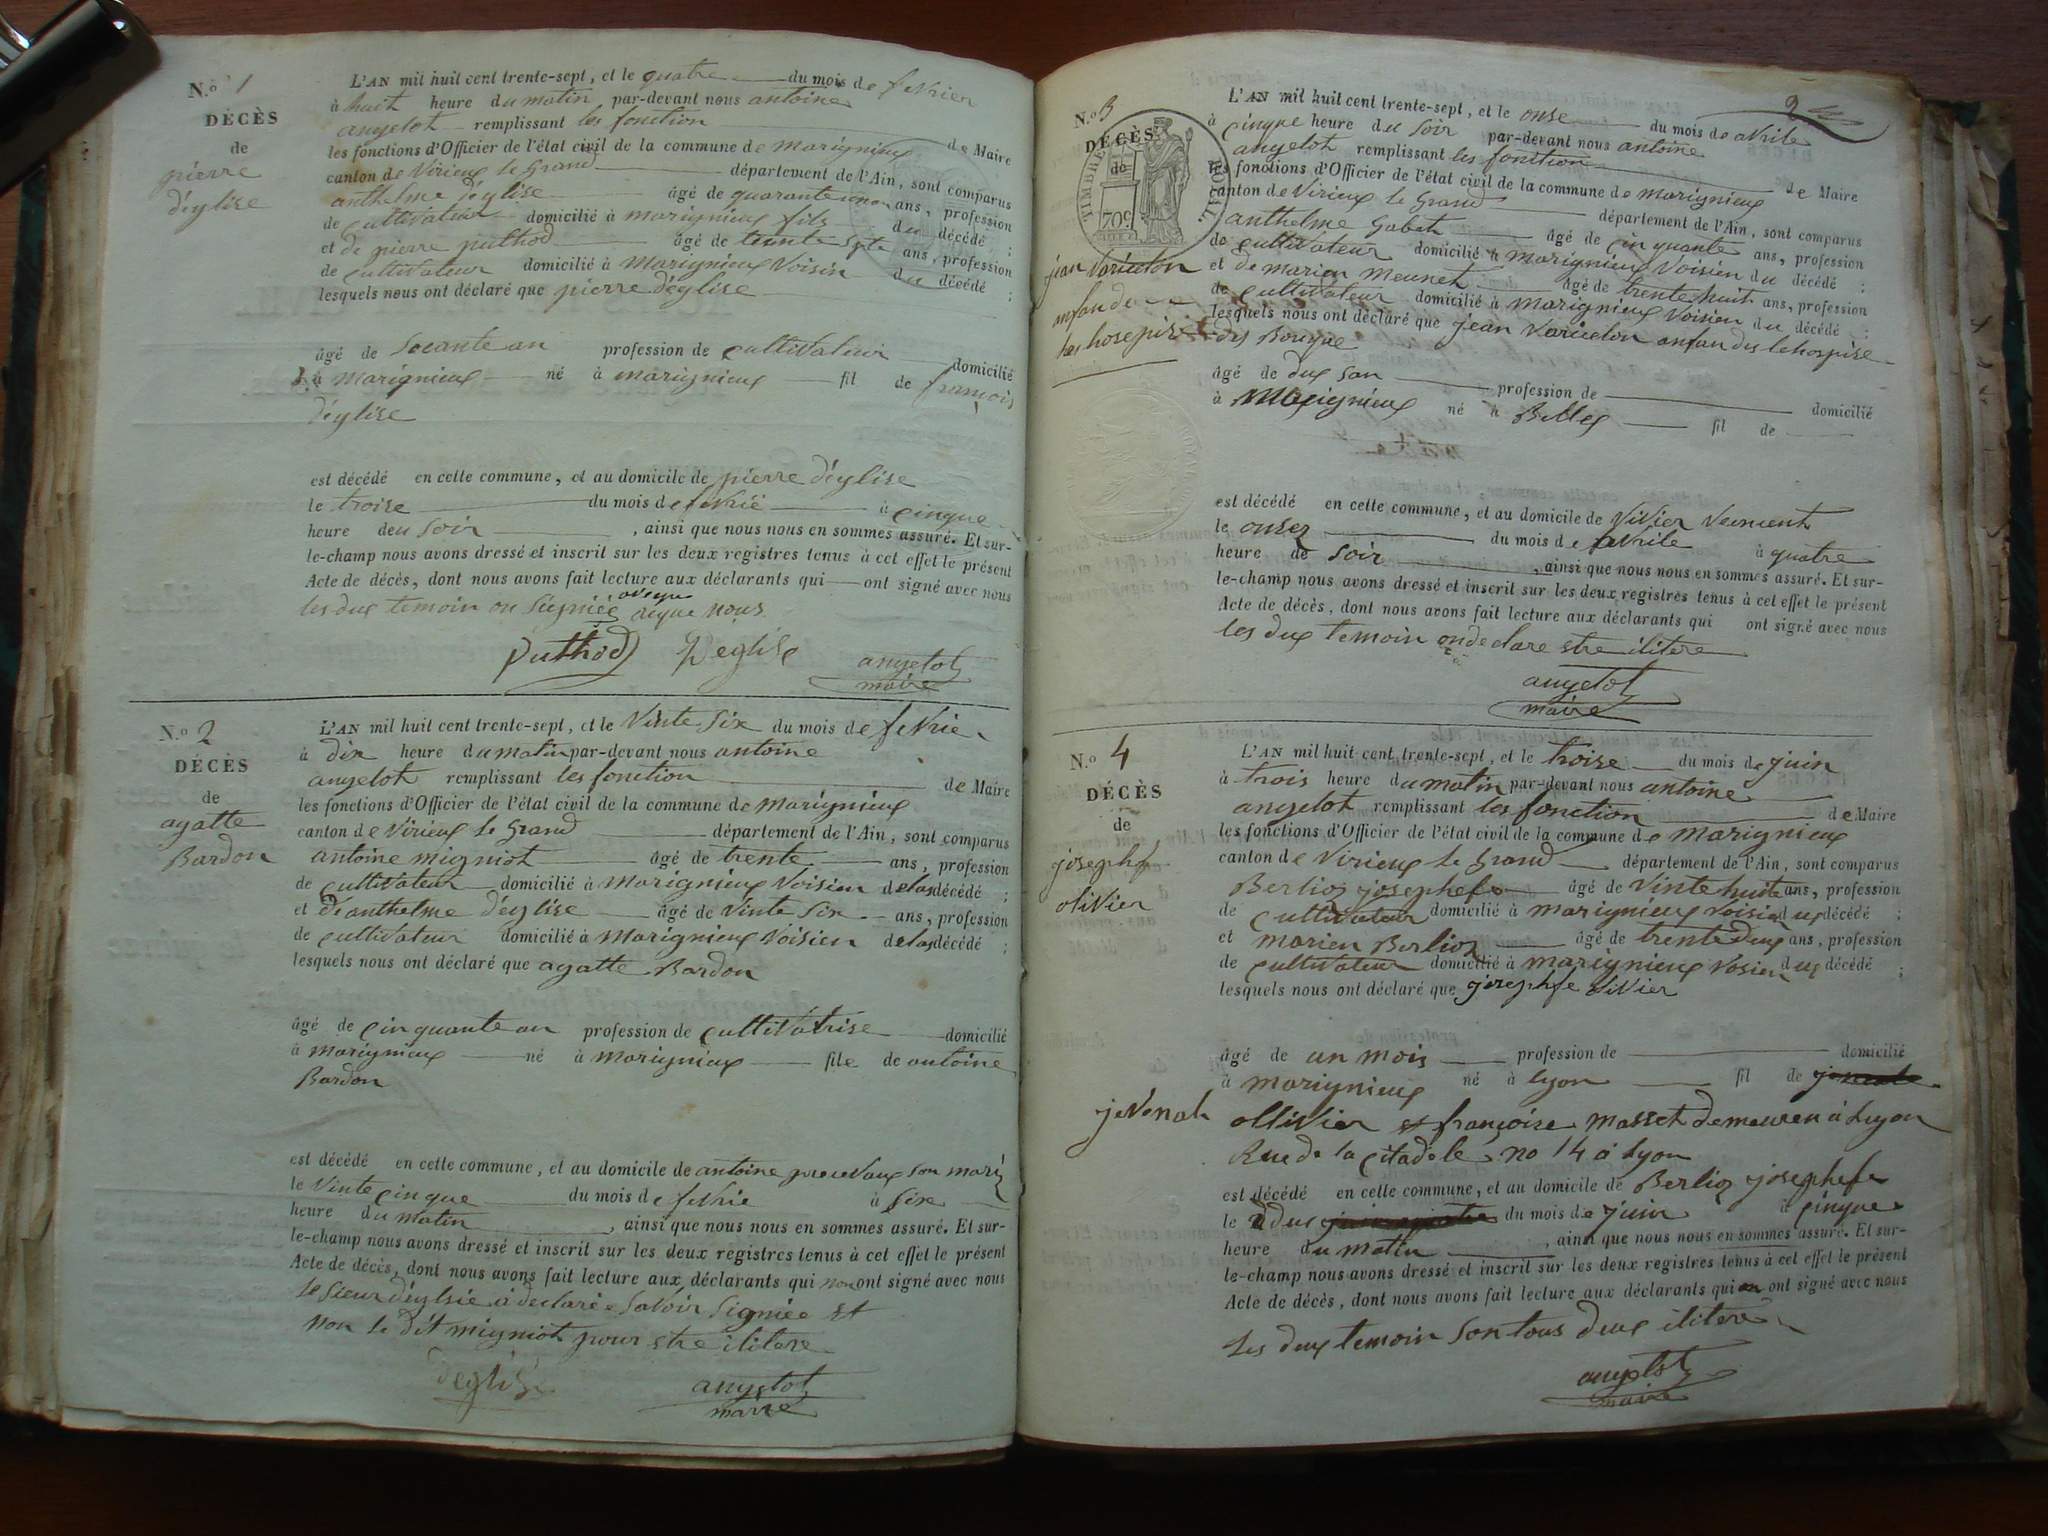 N.º 1
DÉCÈS
de
pierre
déglise
L'AN mil huit cent trente-sept, et le quatre du mois de fevrier
à huit heure du matin par-devant nous antoine
angelot remplissant les fonction de Maire
les fonctions d'Officier de l'état civil de la commune de marignieux
canton de Virieux le Grand département de l'Ain, sont comparus
anthelme déglise âgé de quarante ans, profession
de cultivateur domicilié à marignieux fils du décédé ;
et de pierre puthod âgé de trente septe ans, profession
de cultivateur domicilié à Marignieux Voisin du décédé ;
lesquels nous ont déclaré que pierre déglise
âgé de Socante an profession de cultivateur domicilié
à Marignieux né à marignieux fil de françois
déglise
est décédé en cette commune, et au domicile de pierre déglise
le troise du mois de fevrié à cinque
heure du Soir, ainsi que nous nous en sommes assuré. Et sur-
le-champ nous avons dressé et inscrit sur les deux registres tenus à cet effet le présent
Acte de décès, dont nous avons fait lecture aux déclarants qui ont signé avec nous
les dux temoin on Signiée nous
Puthod Deglise angelot
maire
N.º 2
DÉCÈS
de
agatte
Bardon
L'AN mil huit cent trente-sept, et le Vinte Six du mois de fevrie
à dix heure du matin par-devant nous antoine
angelot remplissant les fonction de Maire
les fonctions d'Officier de l'état civil de la commune de marignieux
canton de Virieux le Grand département de l'Ain, sont comparus
antoine migniot âgé de trente ans, profession
de cultivateur domicilié à Marignieux Voisien de las décédé ;
et de anthelme déglise âgé de Vinte Six ans, profession
de cultivateur domicilié à Marignieux Voisien de las décédé ;
lesquels nous ont déclaré que agatte Bardon
âgé de cinquante an profession de cultivatrise domicilié
à Marignieux né à Marignieux file de antoine
Bardon
est décédé en cette commune, et au domicile de antoine son mari
le Vinte cinque du mois de fevrie à Six
heure du matin, ainsi que nous nous en sommes assuré. Et sur-
le-champ nous avons dressé et inscrit sur les deux registres tenus à cet effet le présent
Acte de décès, dont nous avons fait lecture aux déclarants qui non ont signé avec nous
le Sieur déglsie à declarée Savoir Signiée et
non le dit migniot pour etre ilitere
deglise angelot
maire
2
N.º 3
DÉCÈS
de
TIMBRE ROYAL
70c
jean Varieston
anfan de
les hosepise
L'AN mil huit cent trente-sept, et le onse du mois de avrile
à cinque heure du Soir par-devant nous antoine
angelot remplissant les fonction de Maire
les fonctions d'Officier de l'état civil de la commune de marignieux
canton de Virieux le Grand département de l'Ain, sont comparus
anthelme Gabet âgé de cinquante ans, profession
de cultivateur domicilié à marignieux Voisien du décédé ;
et de marien meunet âgé de trente huit ans, profession
de cultivateur domicilié à Marignieux Voisien du décédé ;
lesquels nous ont déclaré que jean Varieston anfan des lehospise
dy Bourque
âgé de dux san profession de domicilié
à Marignieux né à Belley fil de
est décédé en cette commune, et au domicile de Vivier
le onsez du mois de avrile à quatre
heure de Soir, ainsi que nous nous en sommes assuré. Et sur-
le-champ nous avons dressé et inscrit sur les deux registres tenus à cet effet le présent
Acte de décès, dont nous avons fait lecture aux déclarants qui ont signé avec nous
les dux temoin on declare etre ilitere
angelot
maire
N.º 4
DÉCÈS
de
josephe
olivier
L'AN mil huit cent trente-sept, et le troise du mois de juin
à trois heure du matin par-devant nous antoine
angelot remplissant les fonction de Maire
les fonctions d'Officier de l'état civil de la commune de Marignieux
canton de Virieux le Grand département de l'Ain, sont comparus
Berlioz josephe âgé de Vinte huite ans, profession
de cultivateur domicilié à marignieux voisien du décédé ;
et marien Berlioz âgé de trente dux ans, profession
de cultivateur domicilié à marignieux vosien du décédé ;
lesquels nous ont déclaré que josephe olivier
âgé de un mois profession de domicilié
à marignieux né à lyon fil de
jevenal ollivier et françoise masset demeuren à Lyon
Rue de la citadele no 14 à Lyon
est décédé en cette commune, et au domicile de Berlioz josephe
le dux du mois de juin à cinque
heure du matin, ainsi que nous nous en sommes assuré. Et sur-
le-champ nous avons dressé et inscrit sur les deux registres tenus à cet effet le présent
Acte de décès, dont nous avons fait lecture aux déclarants qui ont signé avec nous
Les dux temoin Son tous deux ilitere
angelot
maire